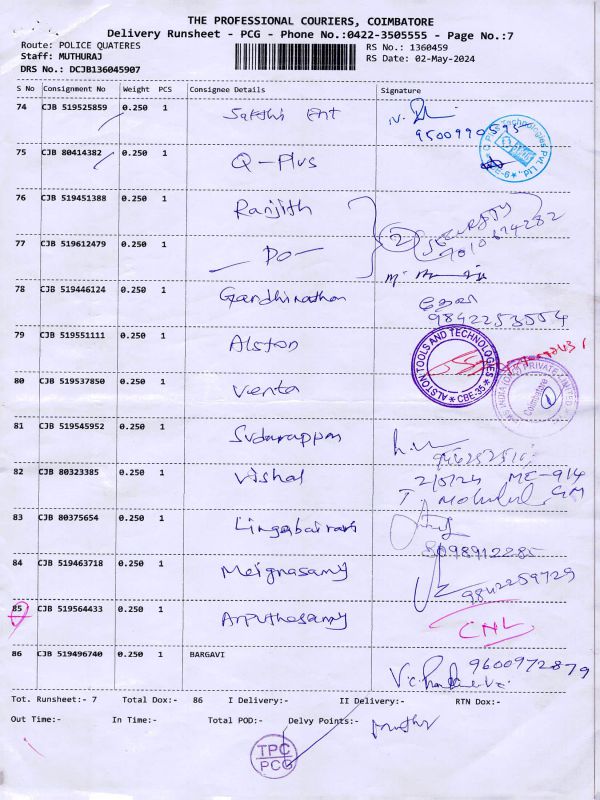 THE PROFESSIONAL COURIERS, COIMBATORE
Delivery Runsheet - PCG - Phone No.:0422-3505555 - Page No.:7
Route: POLICE QUATERES RS No.: 1360459
Staff: MUTHURAJ RS Date: 02-May-2024
DRS No.: DCJB136045907
S No Consignment No Weight PCS Consignee Details Signature
74 CJB 519525859 0.250 1 Sakthi Ent
9500990595
75 CJB 80414382 0.250 1 Q-Plus
76 CJB 519451388 0.250 1 Ranjith
77 CJB 519612479 0.250 1 - Do - 2
78 CJB 519446124 0.250 1 Gandhinathan
9842253554
79 CJB 519551111 0.250 1 Alston
ALSTON TOOLS AND TECHNOLOGIES * CBE-35 *
80 CJB 519537850 0.250 1 Venta
Coimbatore
81 CJB 519545952 0.250 1
82 CJB 80323385 0.250 1 Vishal 2/5/24 ME-914
83 CJB 80375654 0.250 1
8098912285
84 CJB 519463718 0.250 1 Meignasamy
9842259729
85 CJB 519564433 0.250 1 Arputhasamy CNL
86 CJB 519496740 0.250 1 BARGAVI 9600972879
Tot. Runsheet:- 7 Total Dox:- 86 I Delivery:- II Delivery:- RTN Dox:-
Out Time:- In Time:- Total POD:- Delvy Points:-
TPC
PCG